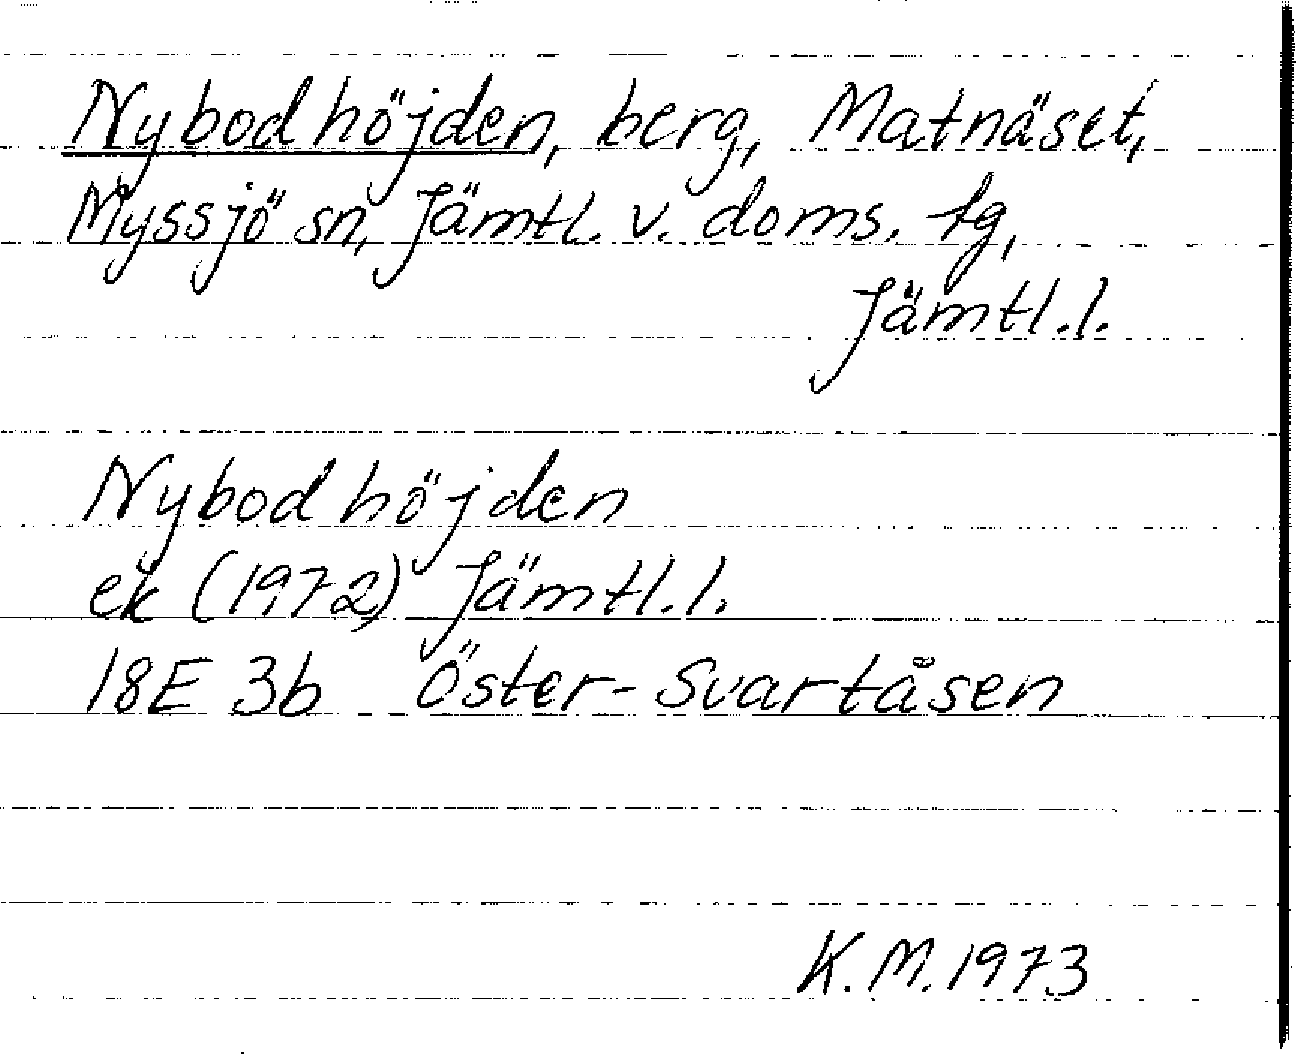 Nybodhöjden, berg, Matnäset,
Myssjö sn, Jämtl. v. doms. tg,
Jämtl.l.
Nybodhöjden
ek (1972) Jämtl.l.
18E 3b Öster-Svartåsen
K.M.1973